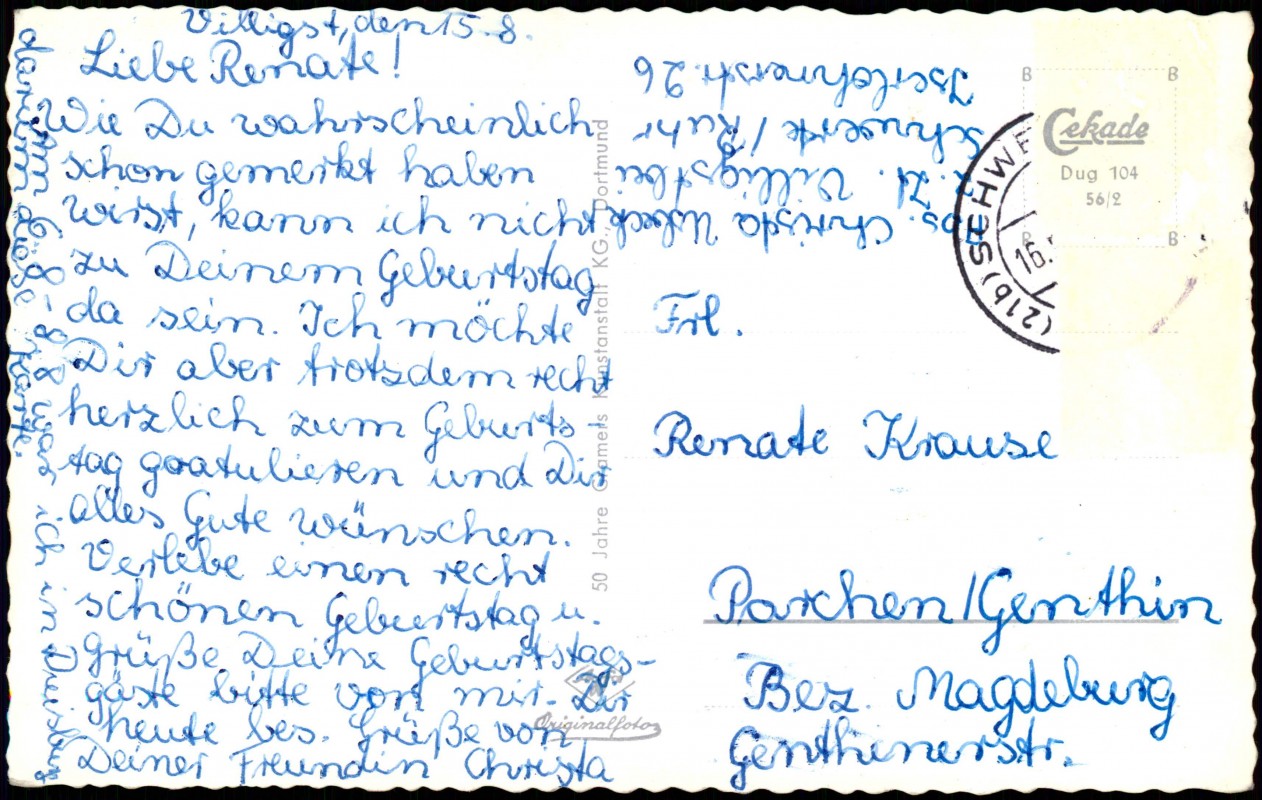 Villigst, den 15.8.
Liebe Renate!
Wie Du wahrscheinlich
schon gemerkt haben
wirst, kann ich nicht
zu Deinem Geburtstag
da sein. Ich möchte
Dir aber trotzdem recht
herzlich zum Geburts-
tag gratulieren und Dir
alles Gute wünschen.
Verlebe einen recht
schönen Geburtstag u.
Grüße Deine Geburtstags-
gäste bitte von mir. Dir
heute bes. Grüße von
Deiner Freundin Christa
Am 6.8. - 8.8 war ich in Duisburg
darum diese Karte.
50 Jahre Cramers Kunstanstalt KG., Dortmund
Originalfoto
Abs. Christa
z. Zt. Villigst bei
Schwerte/Ruhr
Iserlohnerstr. 26
B B
Cekade
Dug 104
56/2
B B
(21b) SCHWE
16.
Frl.
Renate Krause
Parchen/Genthin
Bez. Magdeburg
Genthinerstr.